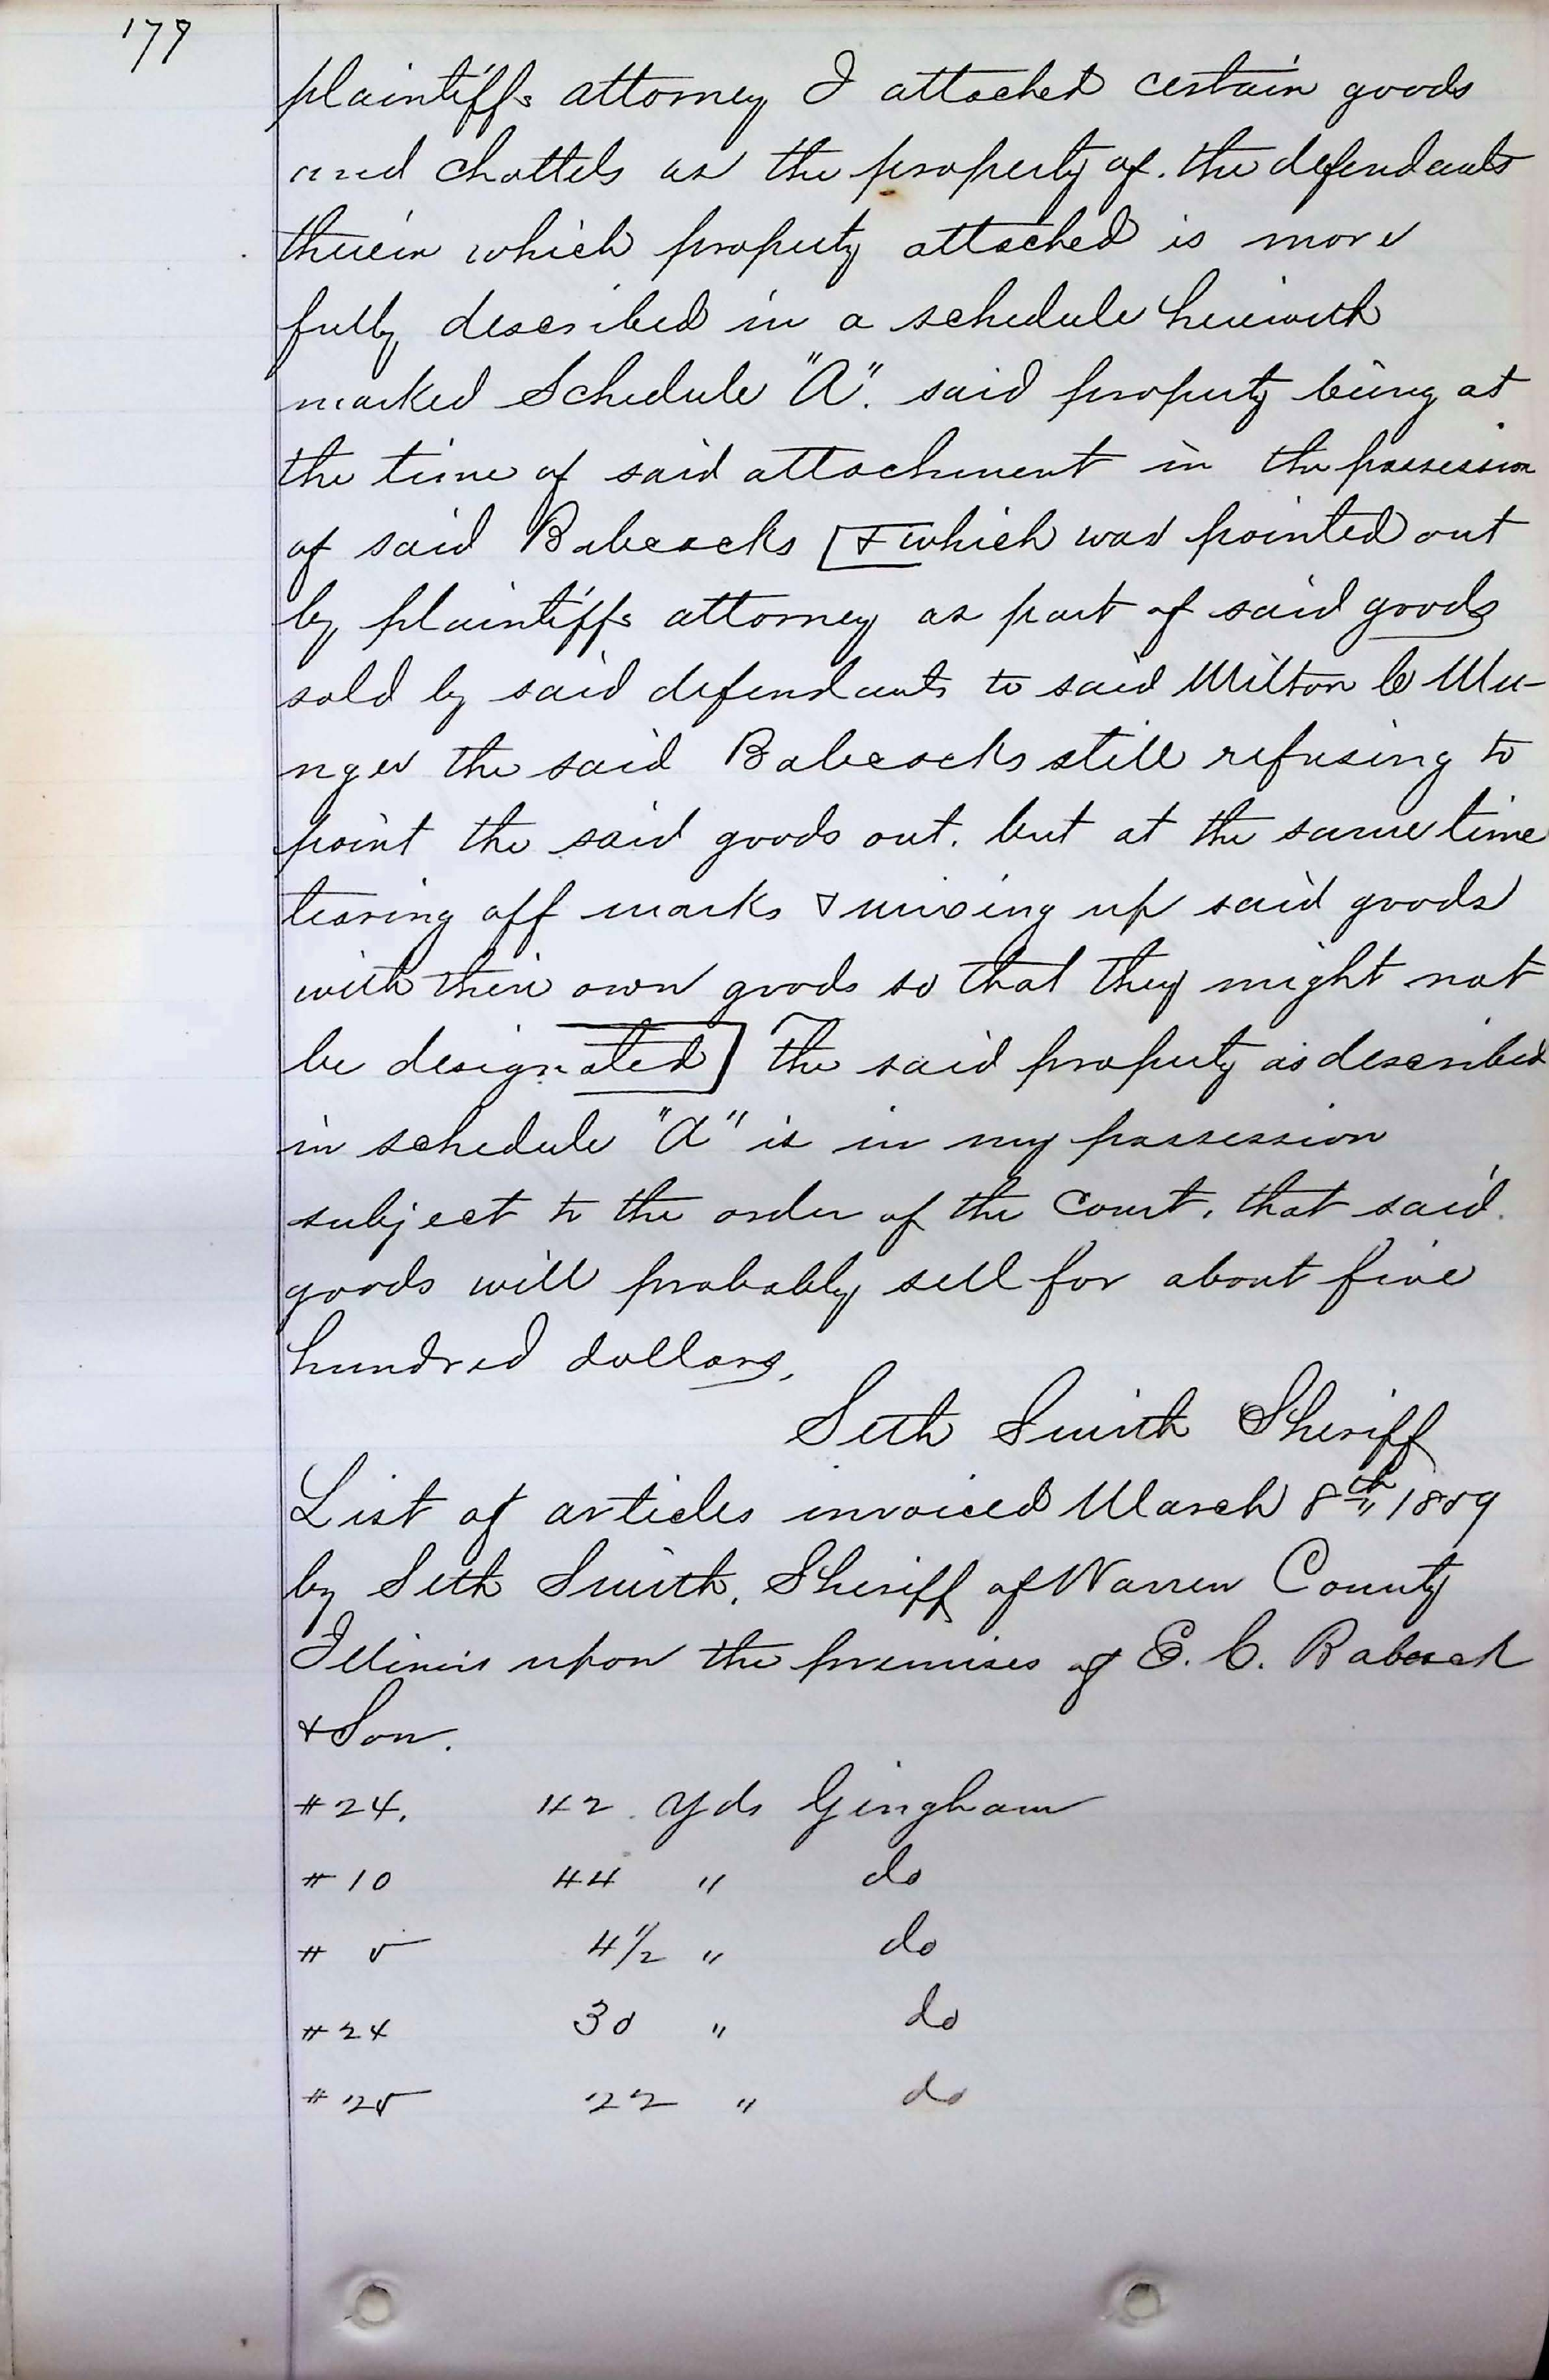 179
plaintiffs attorney I attached certain goods
and chattels as the property of. the defendants
therein which property attached is more
fully described in a schedule herewith
marked Schedule "A". said property being at
the time of said attachment in the possession
of said Babcocks [& which was pointed out
by plaintiffs attorney as part of said goods
sold by said defendants to said Milton C Mu-
nger the said Babcocks still refusing to
point the said goods out. but at the same time
tearing off marks & mixing up said goods
with their own goods so that they might not
be designated] The said property as described
in schedule "A" is in my possession
subject to the order of the Court, that said
goods will probably sell for about five
hundred dollars,
Seth Smith Sheriff
List of articles invoiced March 8th 1889
by Seth Smith, Sheriff of Warren County
Illinois upon the premises of E. C. Babcock
& Son.
#24. 42 yds Gingham
#10 44 " do
# 5 4 1/2 " do
#24 30 " do
#25 22 " do